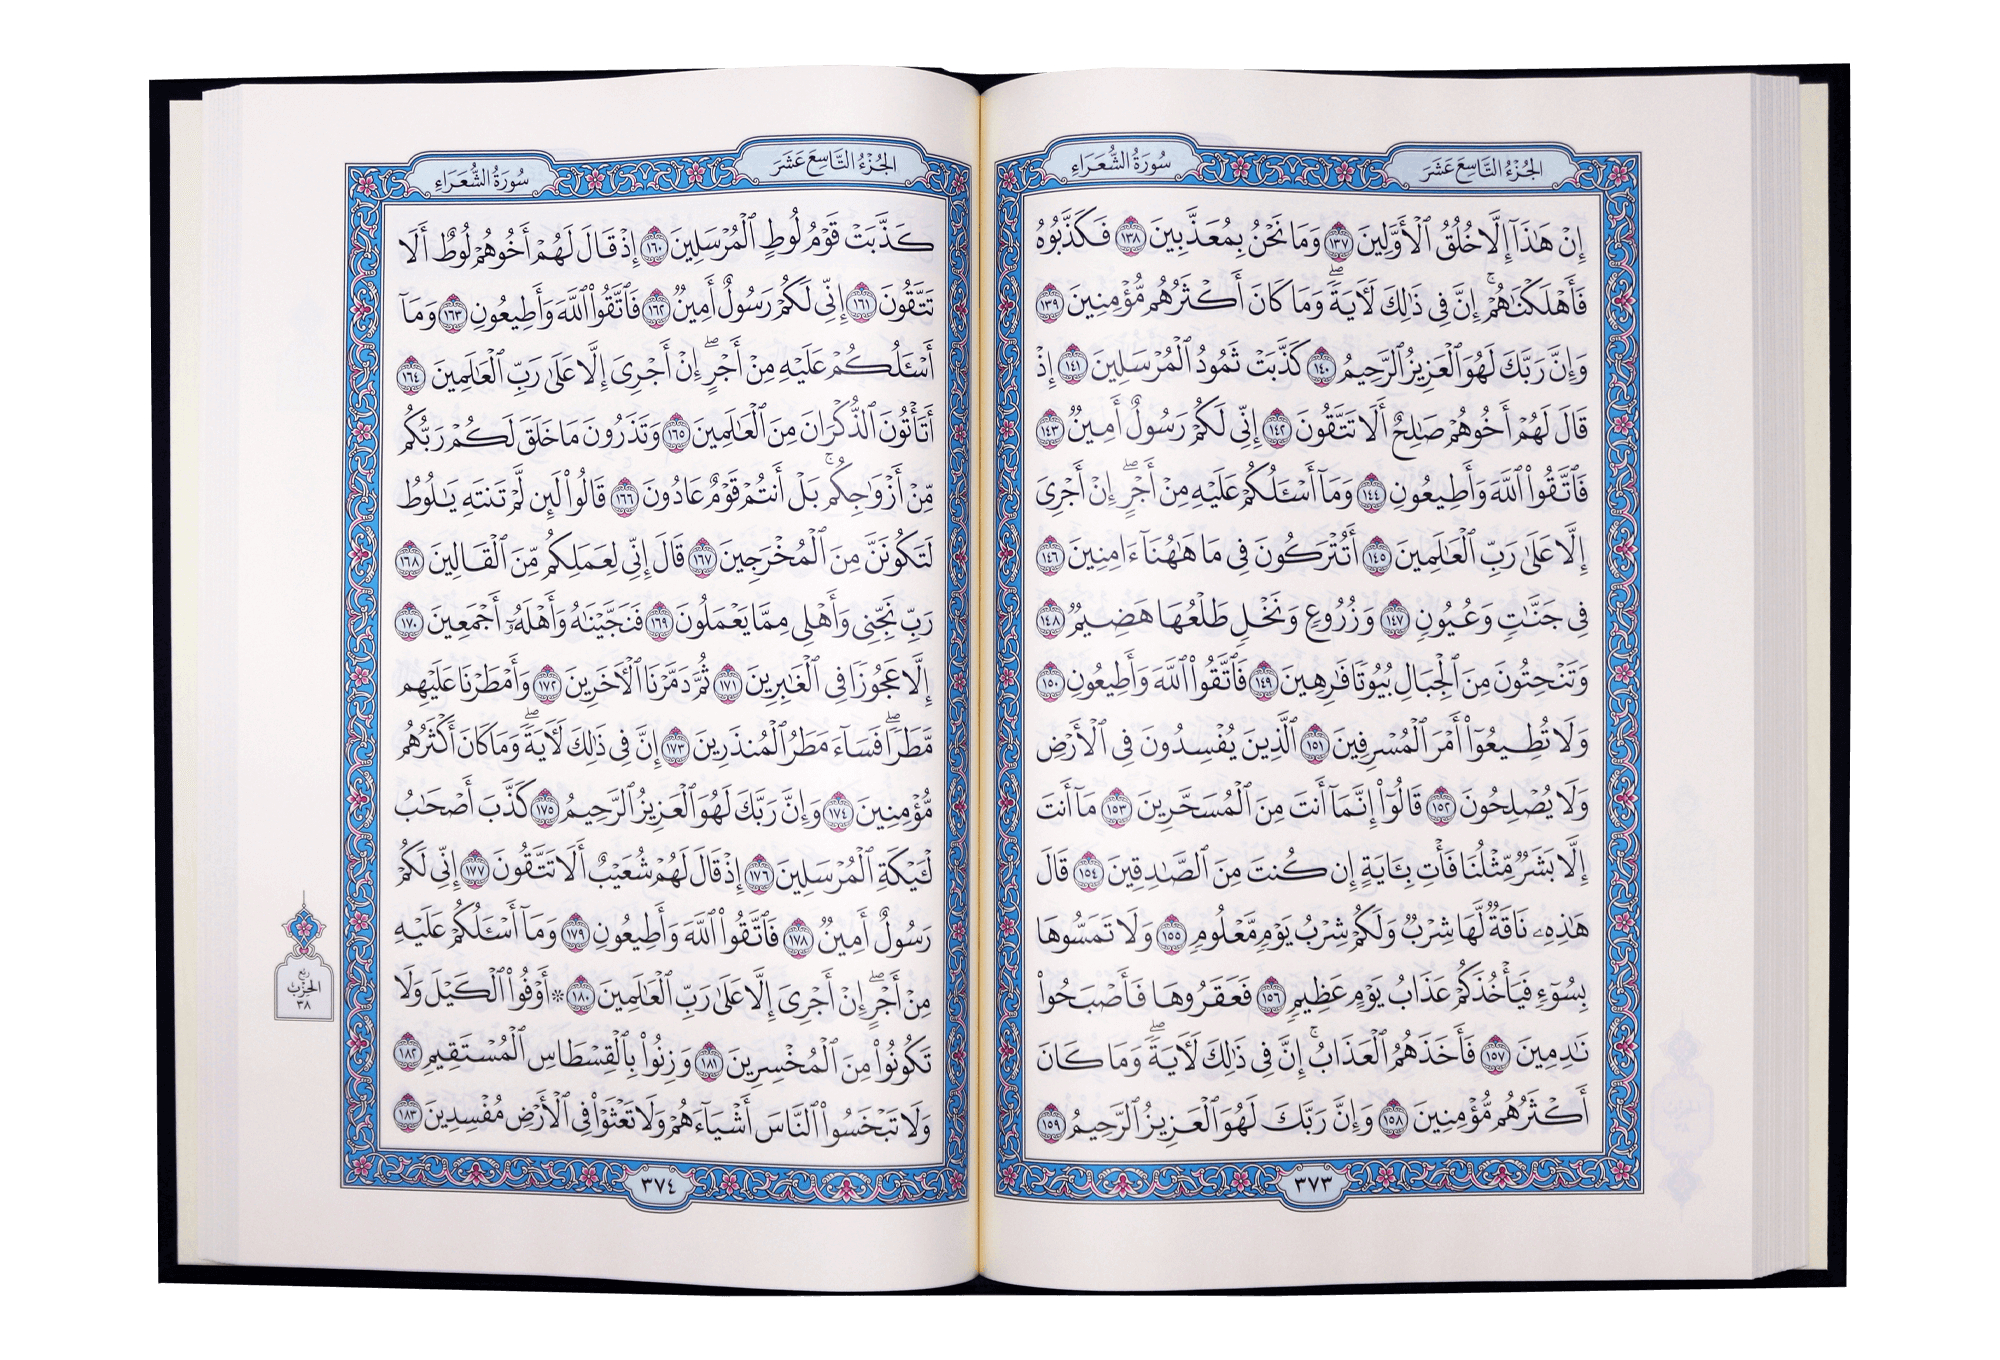 سُورَةُ الشُّعَرَاءِ
الجُزْءُ التَّاسِعَ عَشَرَ
إِنْ هَٰذَآ إِلَّا خُلُقُ ٱلْأَوَّلِينَ ١٣٧ وَمَا نَحْنُ بِمُعَذَّبِينَ ١٣٨ فَكَذَّبُوهُ
فَأَهْلَكْنَٰهُمْۚ إِنَّ فِي ذَٰلِكَ لَأٓيَةًۖ وَمَا كَانَ أَكْثَرُهُم مُّؤْمِنِينَ ١٣٩
وَإِنَّ رَبَّكَ لَهُوَ ٱلْعَزِيزُ ٱلرَّحِيمُ ١٤٠ كَذَّبَتْ ثَمُودُ ٱلْمُرْسَلِينَ ١٤١ إِذْ
قَالَ لَهُمْ أَخُوهُمْ صَٰلِحٌ أَلَا تَتَّقُونَ ١٤٢ إِنِّي لَكُمْ رَسُولٌ أَمِينٌ ١٤٣
فَٱتَّقُوا۟ ٱللَّهَ وَأَطِيعُونِ ١٤٤ وَمَآ أَسْـَٔلُكُمْ عَلَيْهِ مِنْ أَجْرٍۖ إِنْ أَجْرِيَ
إِلَّا عَلَىٰ رَبِّ ٱلْعَٰلَمِينَ ١٤٥ أَتُتْرَكُونَ فِي مَا هَٰهُنَآ ءَامِنِينَ ١٤٦
فِي جَنَّٰتٍ وَعُيُونٍ ١٤٧ وَزُرُوعٍ وَنَخْلٍ طَلْعُهَا هَضِيمٌ ١٤٨
وَتَنْحِتُونَ مِنَ ٱلْجِبَالِ بُيُوتًا فَٰرِهِينَ ١٤٩ فَٱتَّقُوا۟ ٱللَّهَ وَأَطِيعُونِ ١٥٠
وَلَا تُطِيعُوٓا۟ أَمْرَ ٱلْمُسْرِفِينَ ١٥١ ٱلَّذِينَ يُفْسِدُونَ فِي ٱلْأَرْضِ
وَلَا يُصْلِحُونَ ١٥٢ قَالُوٓا۟ إِنَّمَآ أَنتَ مِنَ ٱلْمُسَحَّرِينَ ١٥٣ مَآ أَنتَ
إِلَّا بَشَرٌ مِّثْلُنَا فَأْتِ بِـَٔايَةٍ إِن كُنتَ مِنَ ٱلصَّٰدِقِينَ ١٥٤ قَالَ
هَٰذِهِۦ نَاقَةٌ لَّهَا شِرْبٌ وَلَكُمْ شِرْبُ يَوْمٍ مَّعْلُومٍ ١٥٥ وَلَا تَمَسُّوهَا
بِسُوٓءٍ فَيَأْخُذَكُمْ عَذَابُ يَوْمٍ عَظِيمٍ ١٥٦ فَعَقَرُوهَا فَأَصْبَحُوا۟
نَٰدِمِينَ ١٥٧ فَأَخَذَهُمُ ٱلْعَذَابُۚ إِنَّ فِي ذَٰلِكَ لَأٓيَةًۖ وَمَا كَانَ
أَكْثَرُهُم مُّؤْمِنِينَ ١٥٨ وَإِنَّ رَبَّكَ لَهُوَ ٱلْعَزِيزُ ٱلرَّحِيمُ ١٥٩
٣٧٣
الجُزْءُ التَّاسِعَ عَشَرَ
سُورَةُ الشُّعَرَاءِ
كَذَّبَتْ قَوْمُ لُوطٍ ٱلْمُرْسَلِينَ ١٦٠ إِذْ قَالَ لَهُمْ أَخُوهُمْ لُوطٌ أَلَا
تَتَّقُونَ ١٦١ إِنِّي لَكُمْ رَسُولٌ أَمِينٌ ١٦٢ فَٱتَّقُوا۟ ٱللَّهَ وَأَطِيعُونِ ١٦٣ وَمَآ
أَسْـَٔلُكُمْ عَلَيْهِ مِنْ أَجْرٍۖ إِنْ أَجْرِيَ إِلَّا عَلَىٰ رَبِّ ٱلْعَٰلَمِينَ ١٦٤
أَتَأْتُونَ ٱلذُّكْرَانَ مِنَ ٱلْعَٰلَمِينَ ١٦٥ وَتَذَرُونَ مَا خَلَقَ لَكُمْ رَبُّكُم
مِّنْ أَزْوَٰجِكُمۚ بَلْ أَنتُمْ قَوْمٌ عَادُونَ ١٦٦ قَالُوا۟ لَئِن لَّمْ تَنتَهِ يَٰلُوطُ
لَتَكُونَنَّ مِنَ ٱلْمُخْرَجِينَ ١٦٧ قَالَ إِنِّي لِعَمَلِكُم مِّنَ ٱلْقَالِينَ ١٦٨
رَبِّ نَجِّنِي وَأَهْلِي مِمَّا يَعْمَلُونَ ١٦٩ فَنَجَّيْنَٰهُ وَأَهْلَهُۥٓ أَجْمَعِينَ ١٧٠
إِلَّا عَجُوزًا فِي ٱلْغَٰبِرِينَ ١٧١ ثُمَّ دَمَّرْنَا ٱلْأٓخَرِينَ ١٧٢ وَأَمْطَرْنَا عَلَيْهِم
مَّطَرًاۖ فَسَآءَ مَطَرُ ٱلْمُنذَرِينَ ١٧٣ إِنَّ فِي ذَٰلِكَ لَأٓيَةًۖ وَمَا كَانَ أَكْثَرُهُم
مُّؤْمِنِينَ ١٧٤ وَإِنَّ رَبَّكَ لَهُوَ ٱلْعَزِيزُ ٱلرَّحِيمُ ١٧٥ كَذَّبَ أَصْحَٰبُ
لْـَٔيْكَةِ ٱلْمُرْسَلِينَ ١٧٦ إِذْ قَالَ لَهُمْ شُعَيْبٌ أَلَا تَتَّقُونَ ١٧٧ إِنِّي لَكُمْ
رَسُولٌ أَمِينٌ ١٧٨ فَٱتَّقُوا۟ ٱللَّهَ وَأَطِيعُونِ ١٧٩ وَمَآ أَسْـَٔلُكُمْ عَلَيْهِ
مِنْ أَجْرٍۖ إِنْ أَجْرِيَ إِلَّا عَلَىٰ رَبِّ ٱلْعَٰلَمِينَ ١٨٠ * أَوْفُوا۟ ٱلْكَيْلَ وَلَا
تَكُونُوا۟ مِنَ ٱلْمُخْسِرِينَ ١٨١ وَزِنُوا۟ بِٱلْقِسْطَاسِ ٱلْمُسْتَقِيمِ ١٨٢
وَلَا تَبْخَسُوا۟ ٱلنَّاسَ أَشْيَآءَهُمْ وَلَا تَعْثَوْا۟ فِي ٱلْأَرْضِ مُفْسِدِينَ ١٨٣
ربع
الحزب
٣٨
٣٧٤